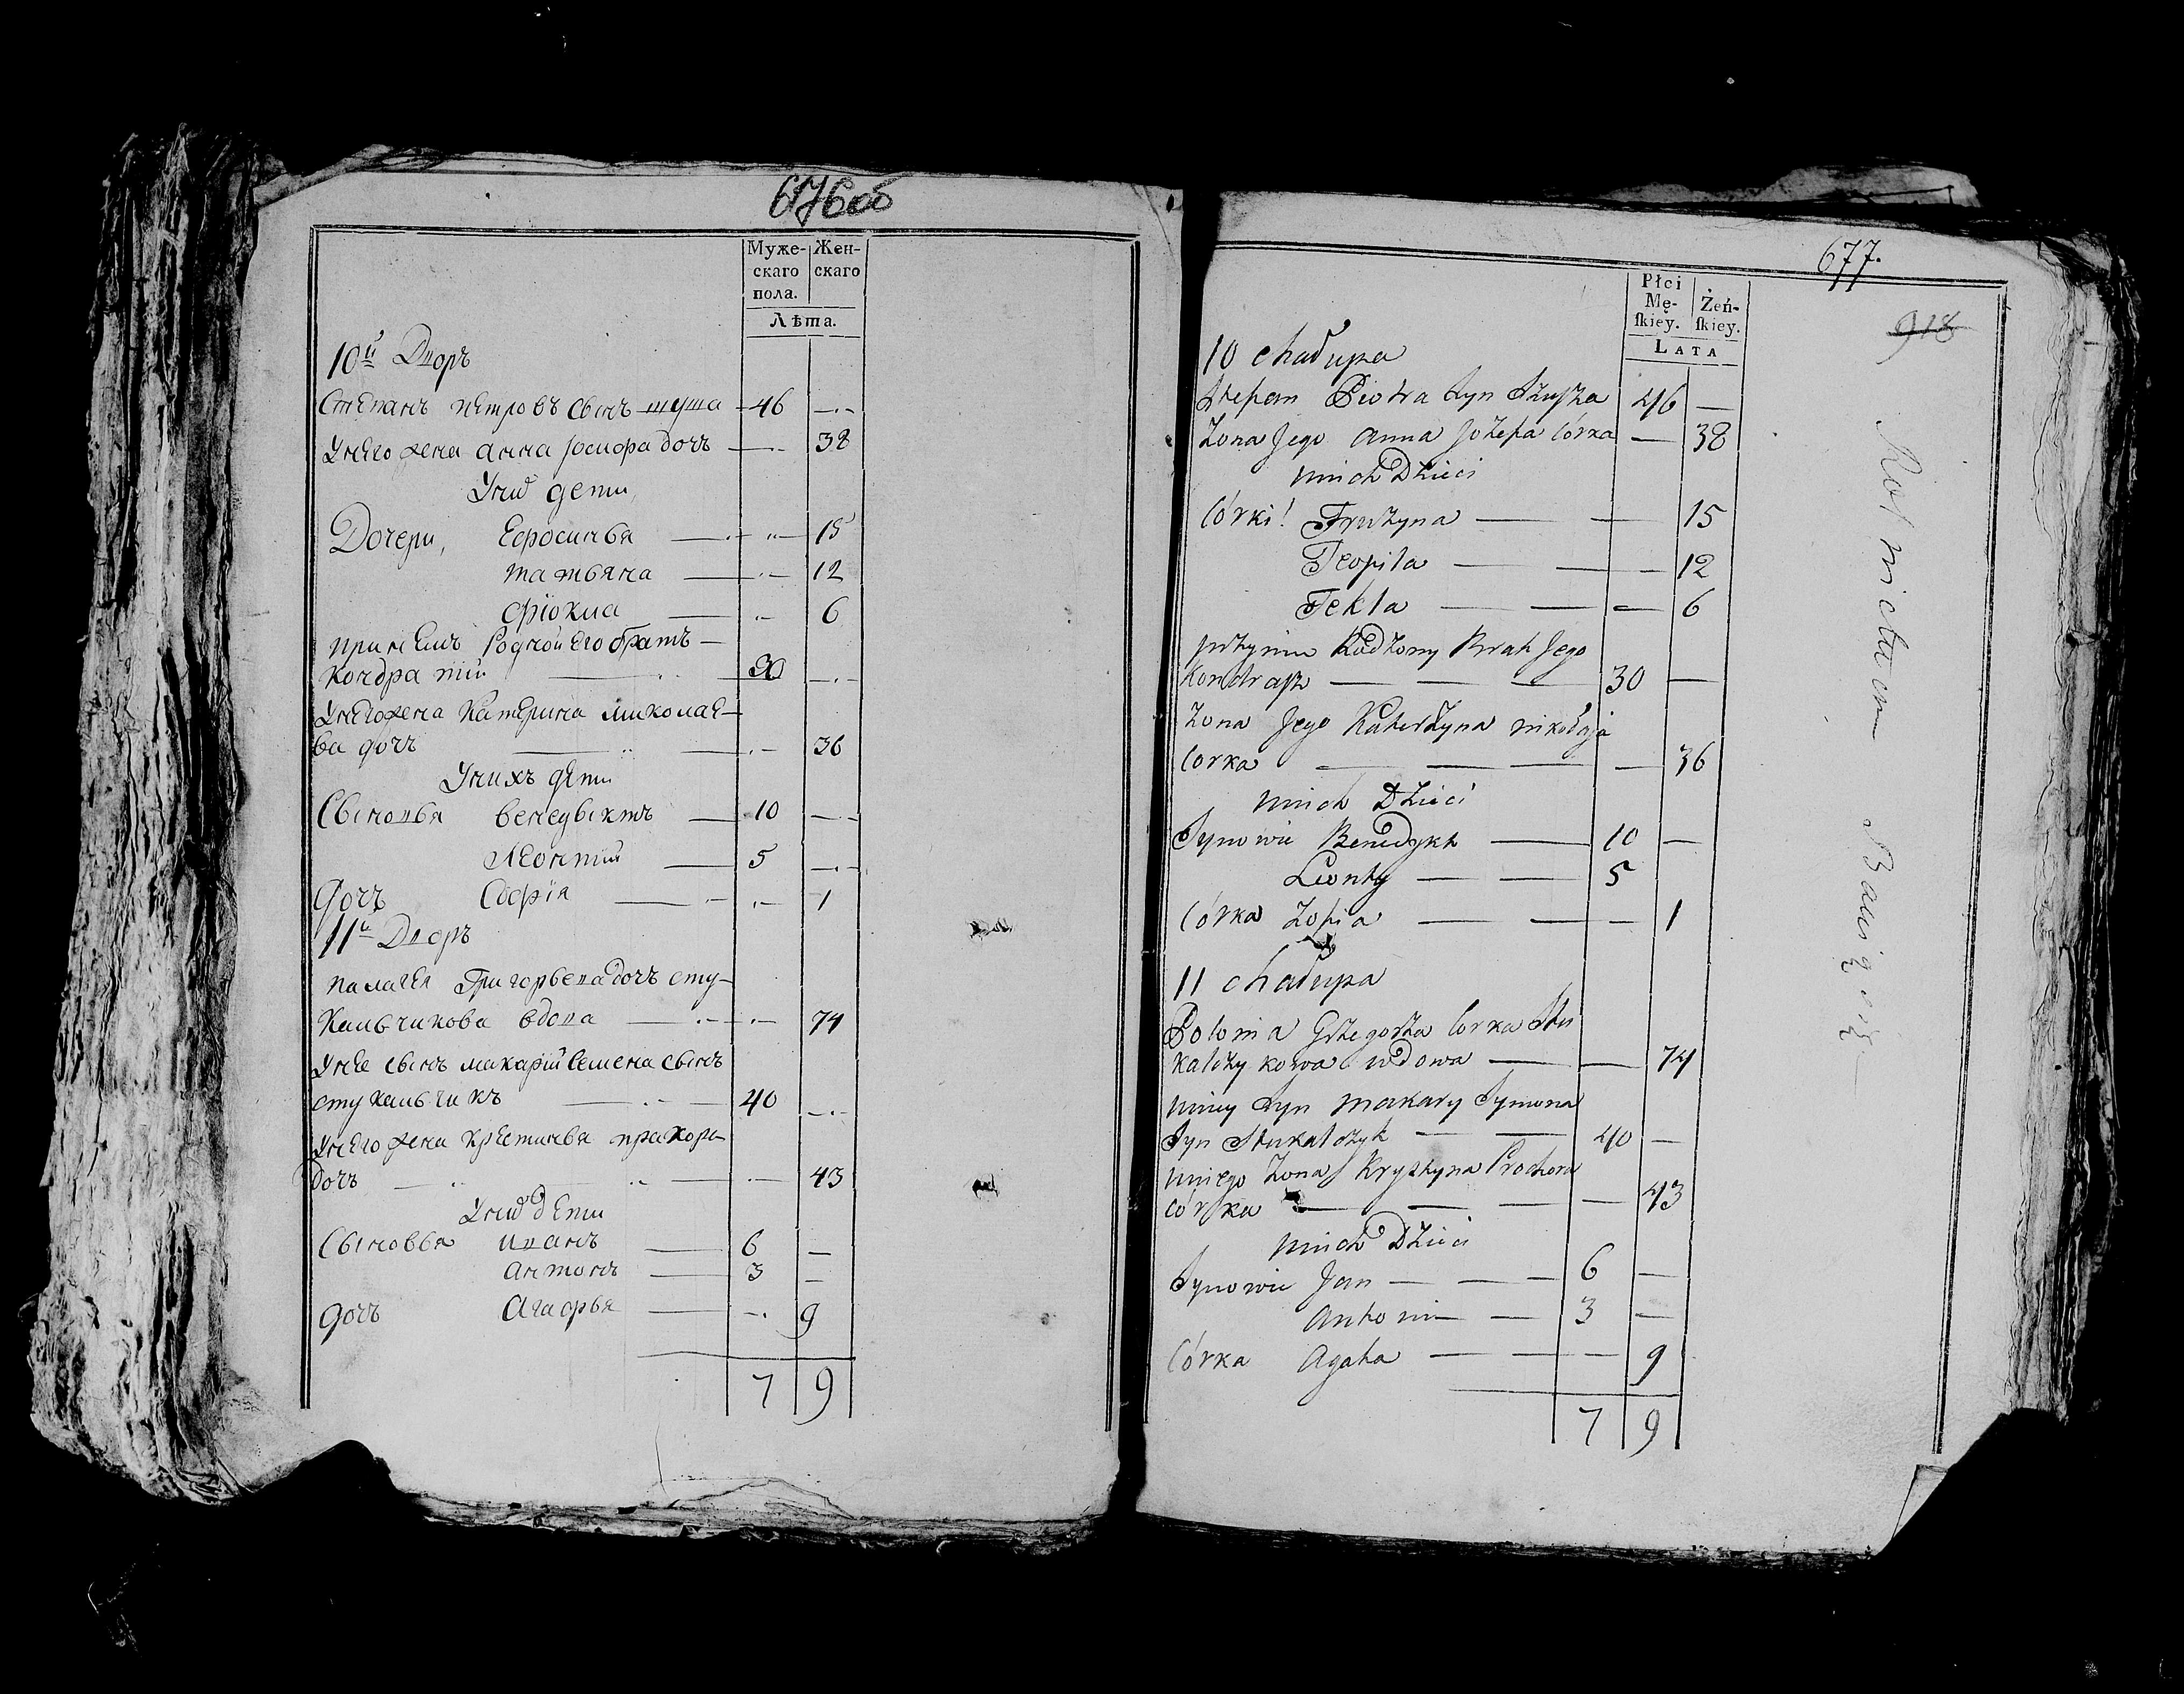 676об
Муже-
скаго
пола.
Жен-
скаго
Лѣта.
10й Дворъ
Степанъ петровъ сынъ шуша 46
Унего жена анна Іосифа дочъ 38
Уних дети,
Дочери, Ефросинья 15
татьяна 12
фіокла 6
при немъ Родной его братъ
кондратий 30
Унегожена Катерина миколае-
ва дочъ 36
Унихъ дети
Сыновья венедыктъ 10
Леонтий 5
дочъ Софія 1
11й Дворъ
палагея Григорьева дочъ сту-
кальчикова вдова 74
Унее сынъ макарий семена сынъ
стукальчикъ 40
Унего жена крестинья прахора
дочъ 43
Уних дети
Сыновья иванъ 6
антонъ 3
дочъ Агафья 9
7 9
677.
918
Płci
Mę-
ſkiey.
Żeń-
ſkiey.
LATA
10 chałupa
Stefan Piotra Syn Szusza 46
Zona Jego anna Jozefa Córka 38
unich Dzieci
Córki! Fruzyna 15
Teofila 12
Tekla 6
przynim Rodzony Brat Jego
Kondrasz 30
Zona Jego Katerzyna mikołaja
Corka 36
unich Dzieci
Synowie Benedykt 10
Leonty 5
Córka Zofia 1
11 chałupa
Polonia Grzegorza Corka Stu
kalczykowa wdowa 74
uniey Syn makary Symona
Syn Stukalczyk 40
uniego Zona Krystyna Prochora
córka 43
unich Dzieci
Synowie Jan 6
antoni 3
Córka Agata 9
7 9
Rotmistrem